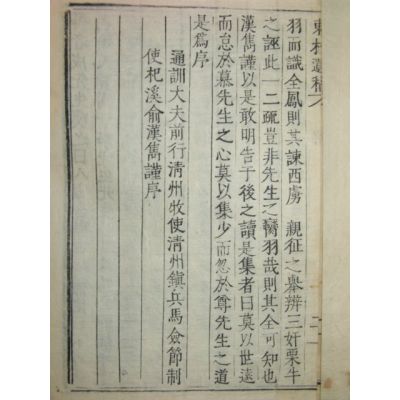 東村遺稿
羽而識全鳳則其諫西虜 親征之舉辨三奸栗牛
之誣此一二疏豈非先生之臠羽哉則其全可知也
漢雋謹以是敢明告于後之讀是集者曰莫以世遠
而怠於慕先生之心莫以集少而忽於尊先生之道
是爲序
通訓大夫前行淸州牧使淸州鎭兵馬僉節制
使杞溪俞漢雋謹序